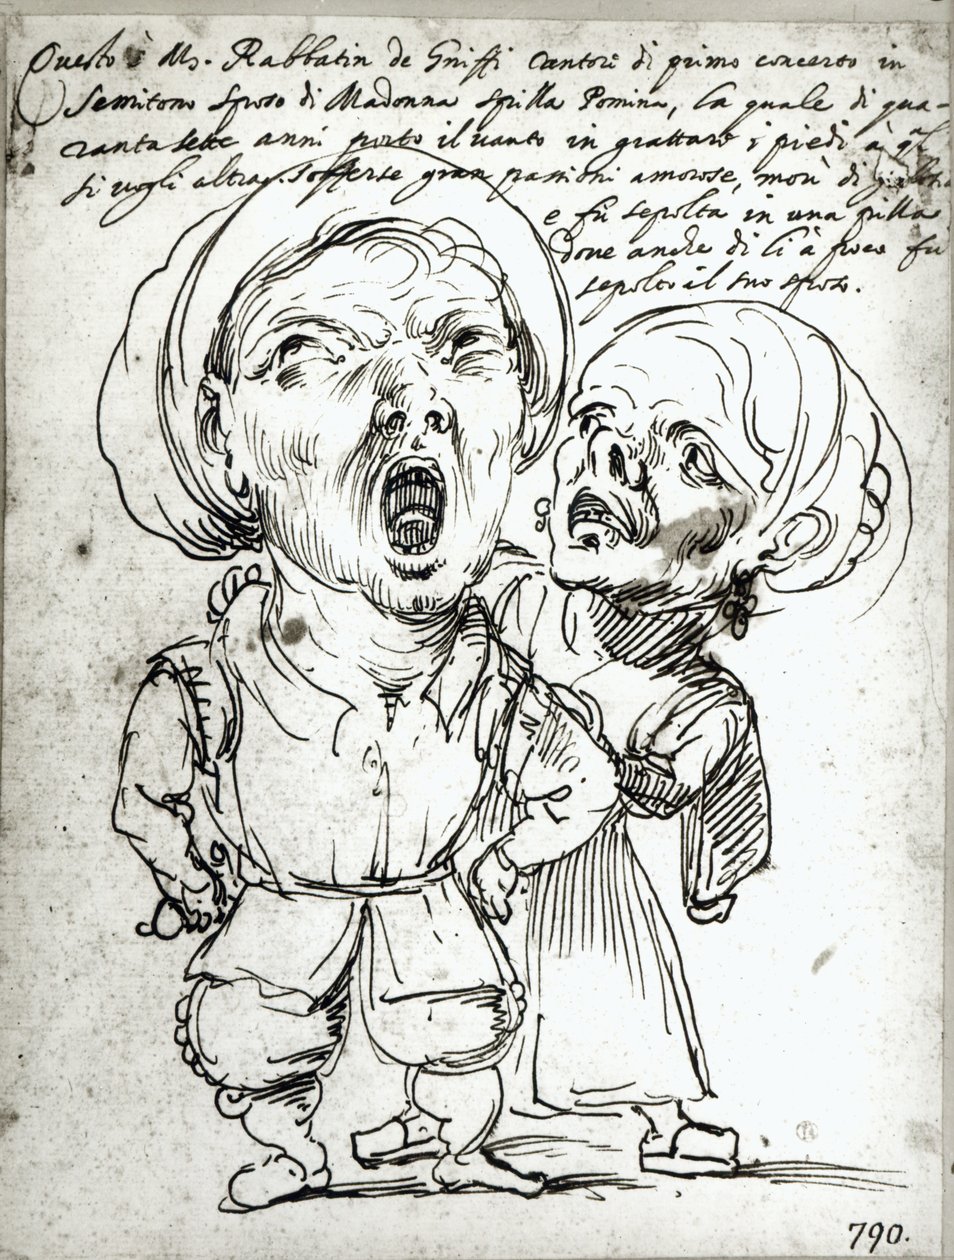 Questo è Ms. Rabbatin de Griffi Cantore di primo concerto in
Semitono sposo di Madonna spilla Pomina, la quale di qua-
ranta sette anni porto il vanto in grattare i piedi à
si vogli altra. Sofferse gran passioni amorose, morì di
e fù sepolta in una pilla
dove anche di li à poco fù
sepolto il suo sposo.
790.